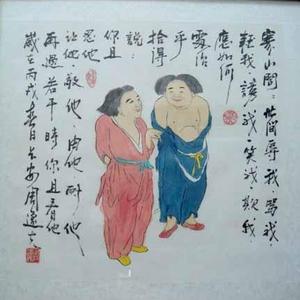 寒山問：世間辱我、罵我、
輕我、謗我、笑我、欺我
應如何
處治
乎
拾得
說：
你且
忍他
讓他、敬他、由他、耐他
再過若干時你且看他
丙戌春日長安周